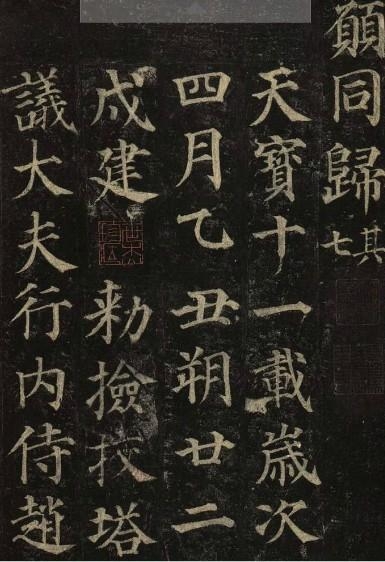 願同歸其七
天寶十一載歲次
四月乙丑朔廿二
成建勑撿挍塔
議大夫行内侍趙